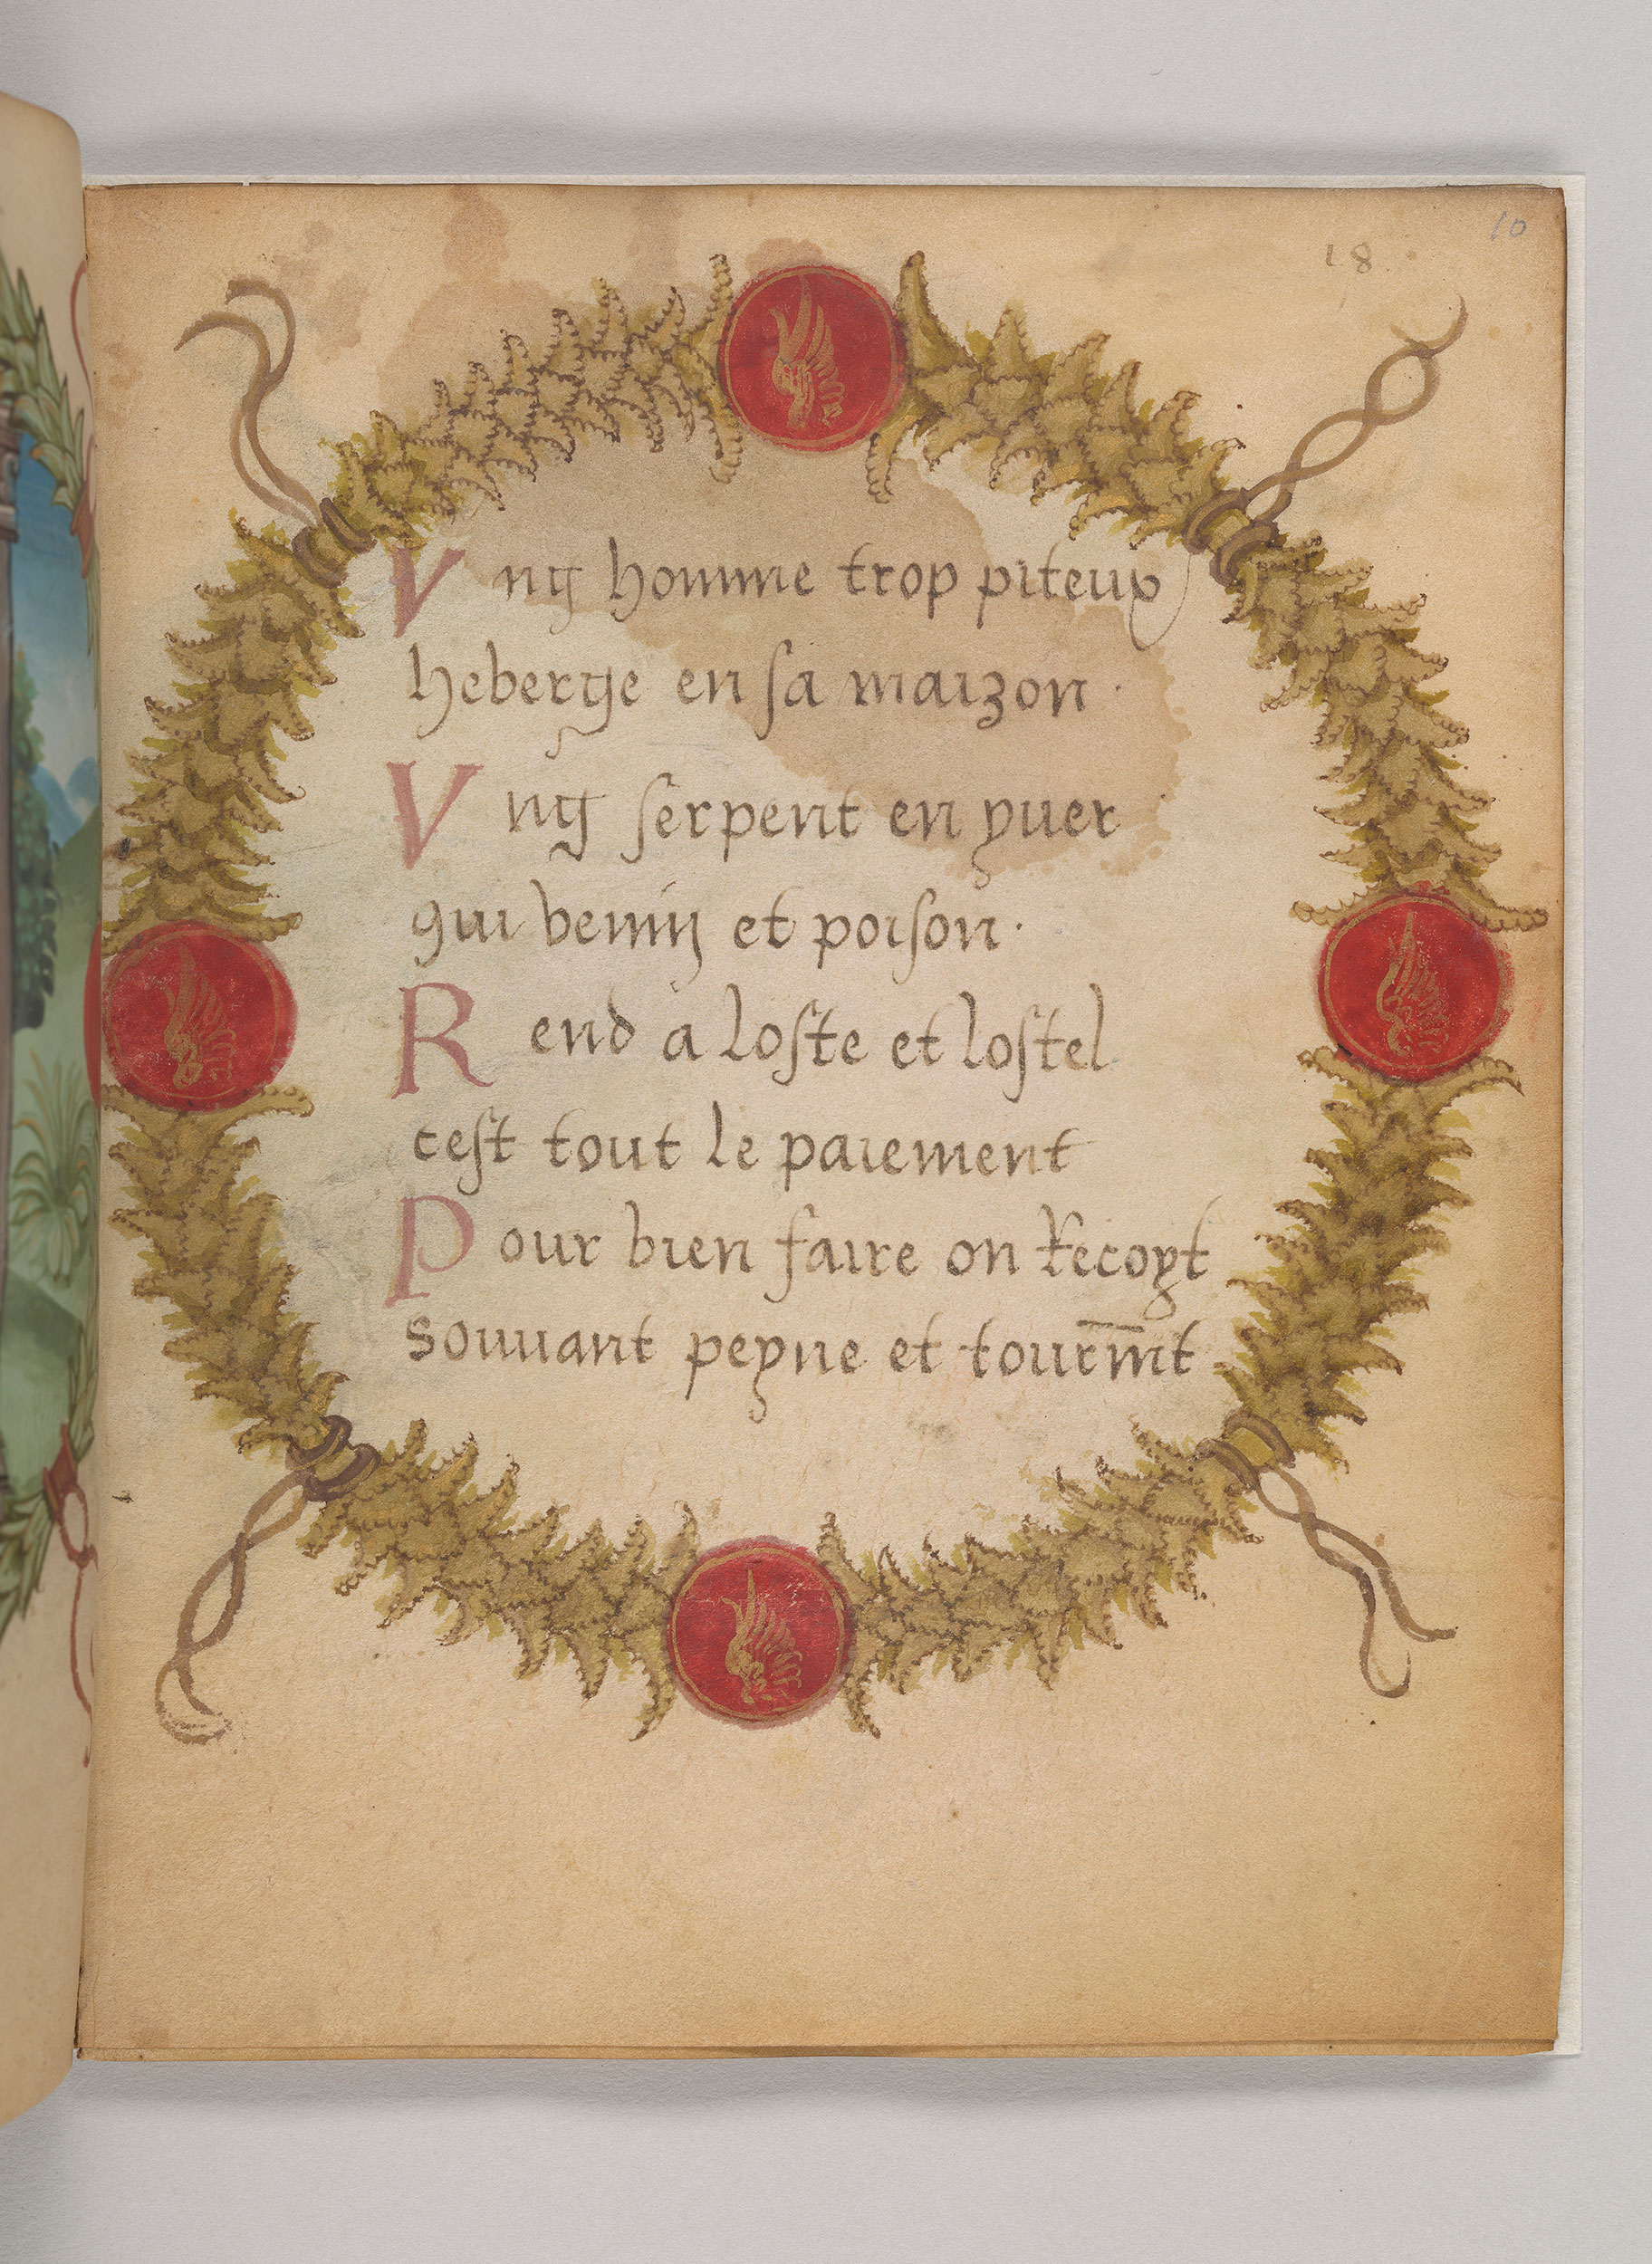 10
18
Vng homme trop piteux
heberge en sa maizon ·
Vng serpent en yuer
qui venin et poison ·
Rend a loste et lostel
cest tout le paiement
Pour bien faire on Recoyt
souuant peyne et tourm̅t